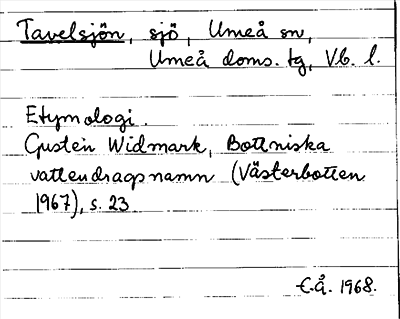 Tavelsjön, sjö, Umeå sn,
Umeå doms. tg, Vb. l.
Etymologi.
Gusten Widmark, Bottniska
vattendragsnamn (Västerbotten
1967), s. 23
E.Å. 1968.